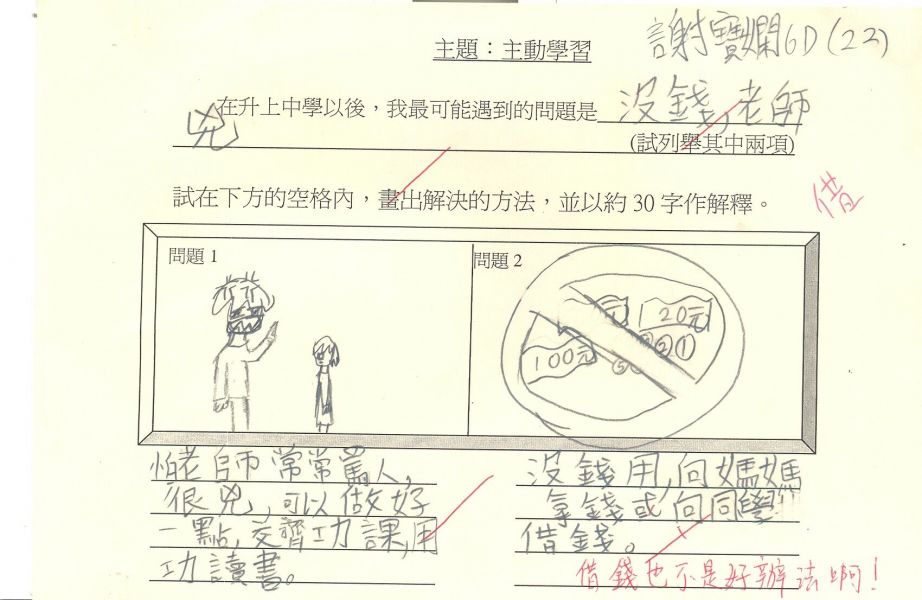 主題：主動學習
謝寶嫻6D(22)
在升上中學以後，我最可能遇到的問題是 沒錢,老師
兇
(試列舉其中兩項)
試在下方的空格內，畫出解決的方法，並以約 30 字作解釋。
借
問題 1
問題 2
元
20元
100元
⑤ ② ①
怕老師常常罵人,
很兇,可以做好
一點,交齊功課,用
功讀書。
沒錢用,向媽媽
拿錢或向同學
借錢。
借錢也不是好辦法啊！